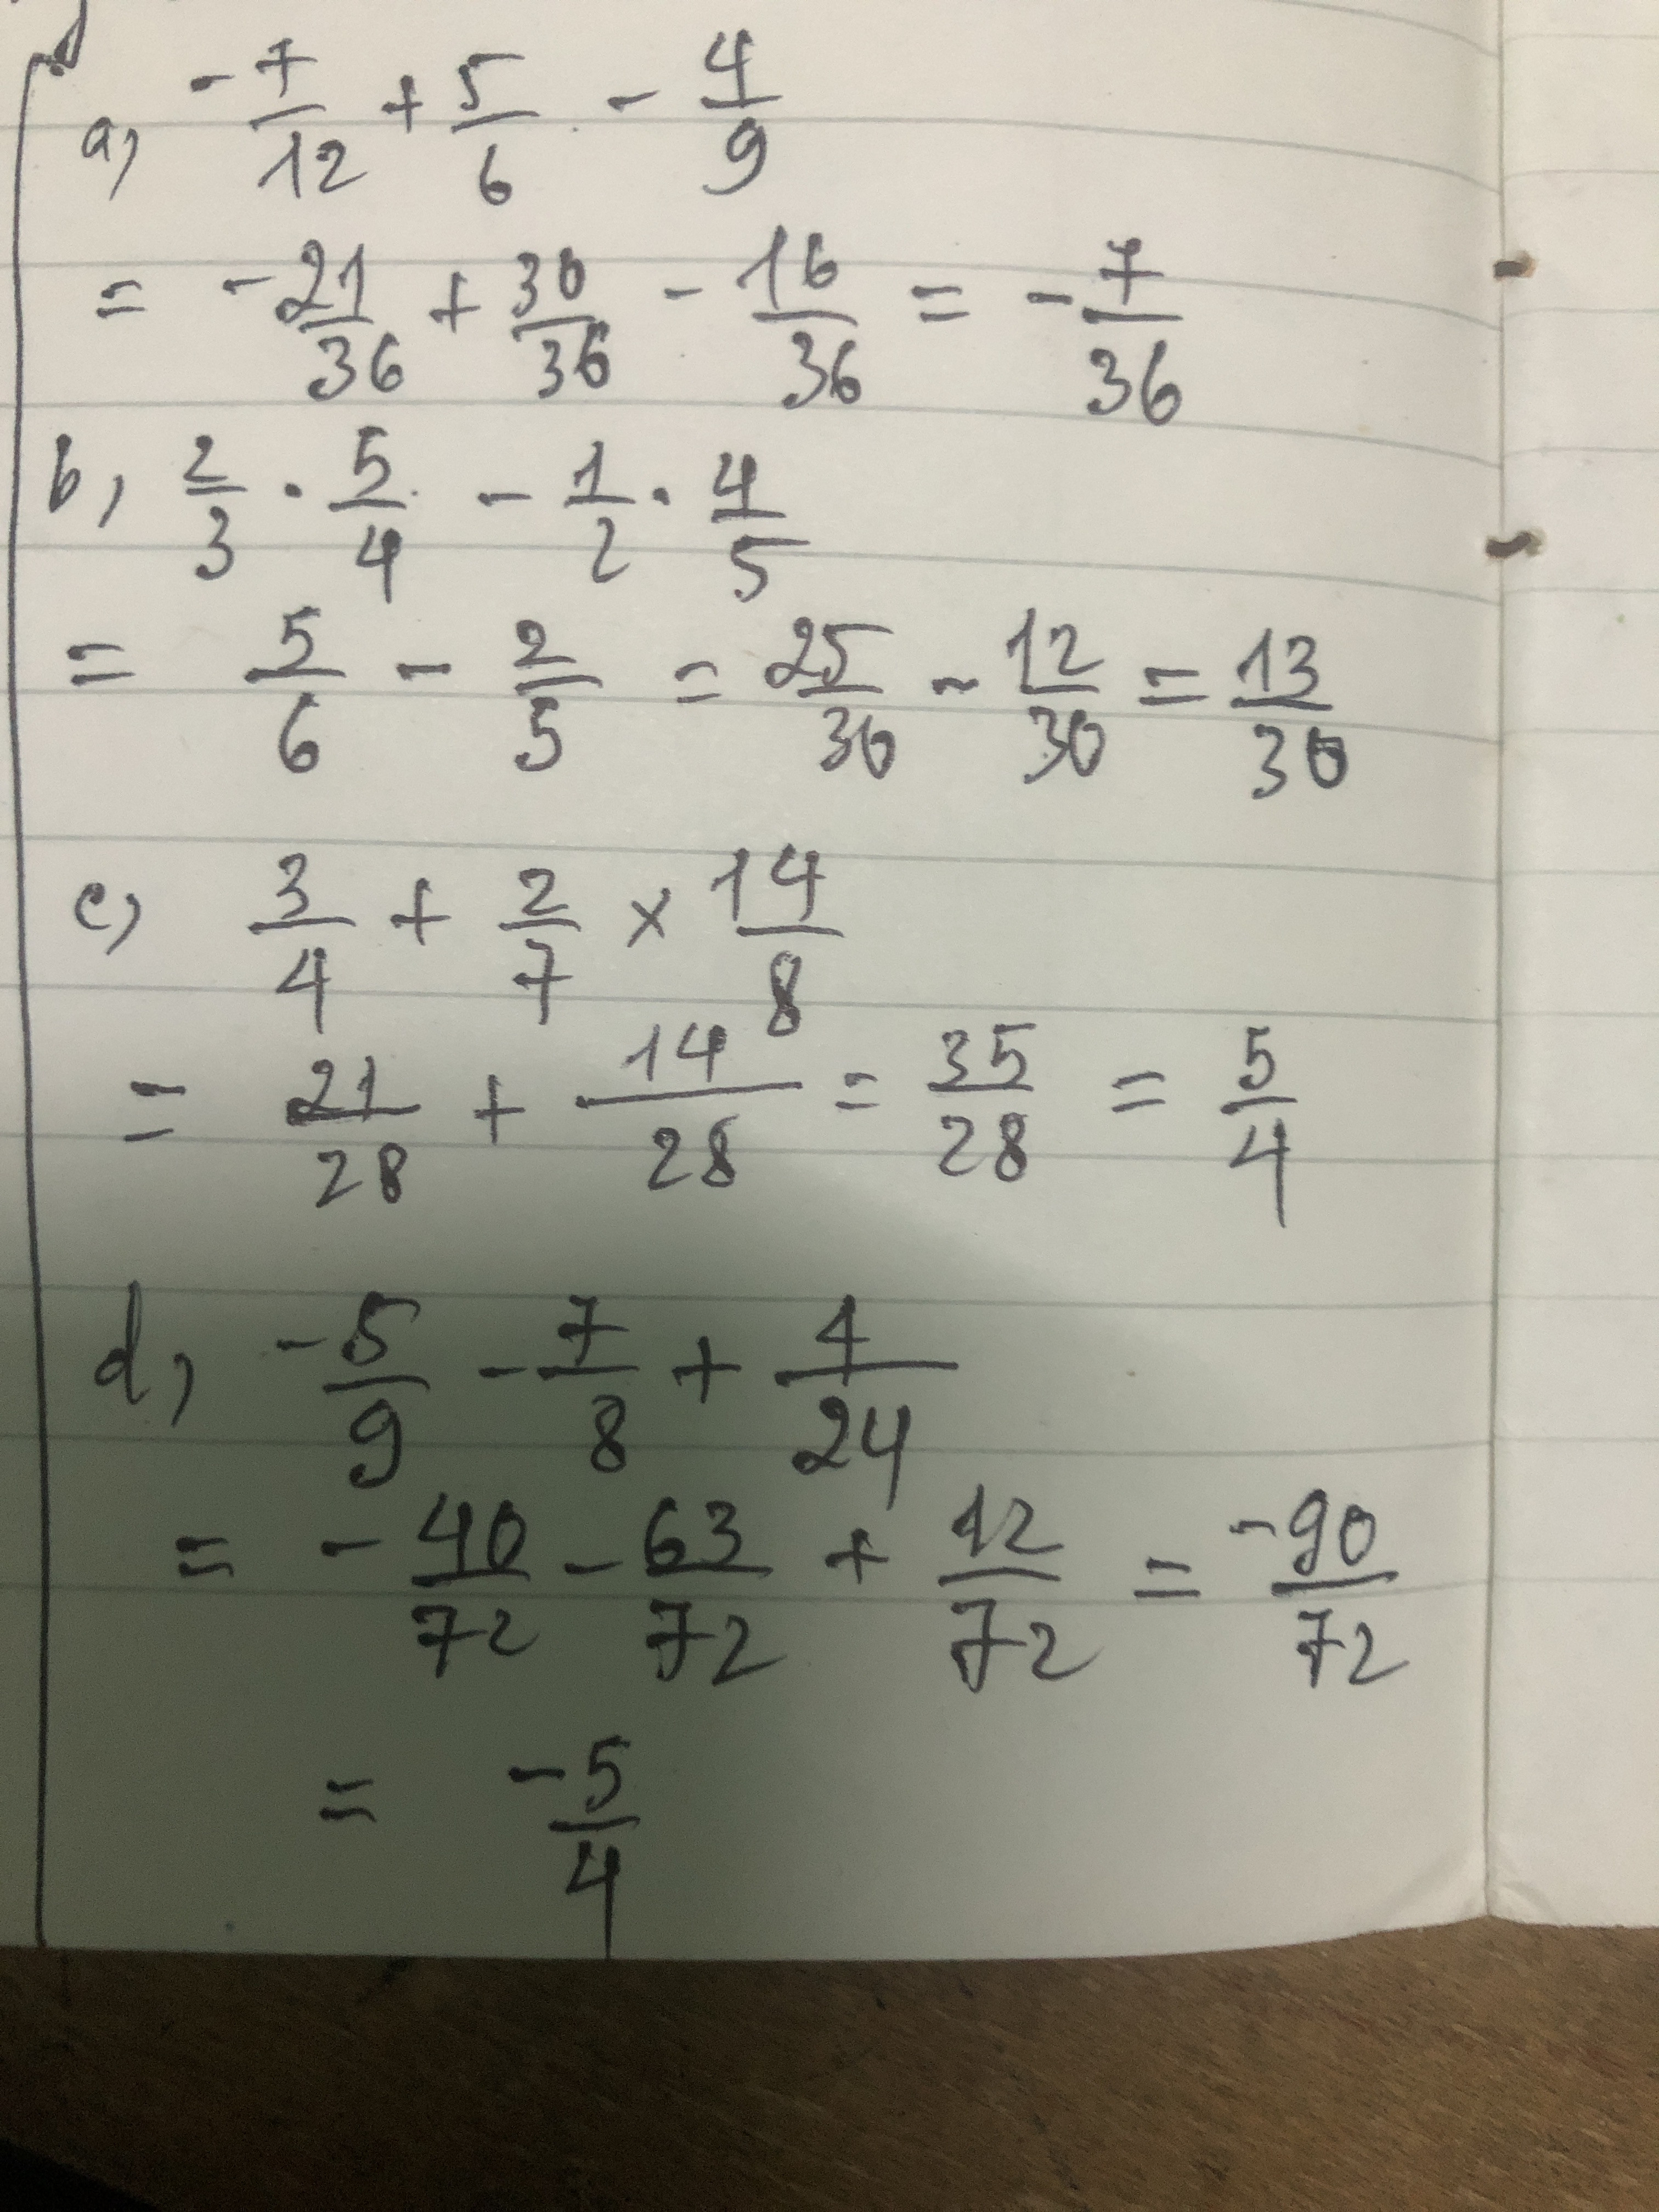 a, -7/12 + 5/6 - 4/9
= -21/36 + 30/36 - 16/36 = -7/36
b, 2/3 · 5/4 - 1/2 · 4/5
= 5/6 - 2/5 = 25/30 - 12/30 = 13/30
c, 3/4 + 2/7 × 14/8
= 21/28 + 14/28 = 35/28 = 5/4
d, -5/9 - 7/8 + 4/24
= -40/72 - 63/72 + 12/72 = -90/72
= -5/4